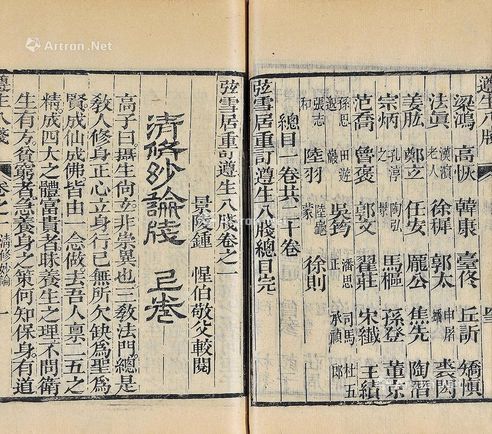 Artron.Net
遵生八牋
梁鴻 高恢 韓康 臺佟 丘訢 矯慎
法真 漢濱老人 徐穉 郭太 申屠 袁閎
姜肱 鄭玄 任安 龐公 焦先 陶潛
宗炳之 孔淳 陶弘 馬樞 孫登 董京
范喬 魯褒 郭文 翟莊 宋纖 王績
孫思邈 田遊 潘思正 司馬承禎 杜五郎
張志和 陸羽 陸龜蒙 吳筠 徐則
總目一卷共二十卷
弦雪居重訂遵生八牋總目完
弦雪居重訂遵生八牋卷之一
景陵鍾 惺伯敬父較閱
清修妙論牋
高子曰攝生尚玄非崇異也三教法門總是
教人修身正心立身行已無所欠缺為聖為
賢成仙成佛皆由一念做去吾人禀二五之
精成四大之體富貴者昧養生之理不問衛
生有方貧窮者急養身之策何知保身有道
遵生八牋 卷之一 清修妙論 一